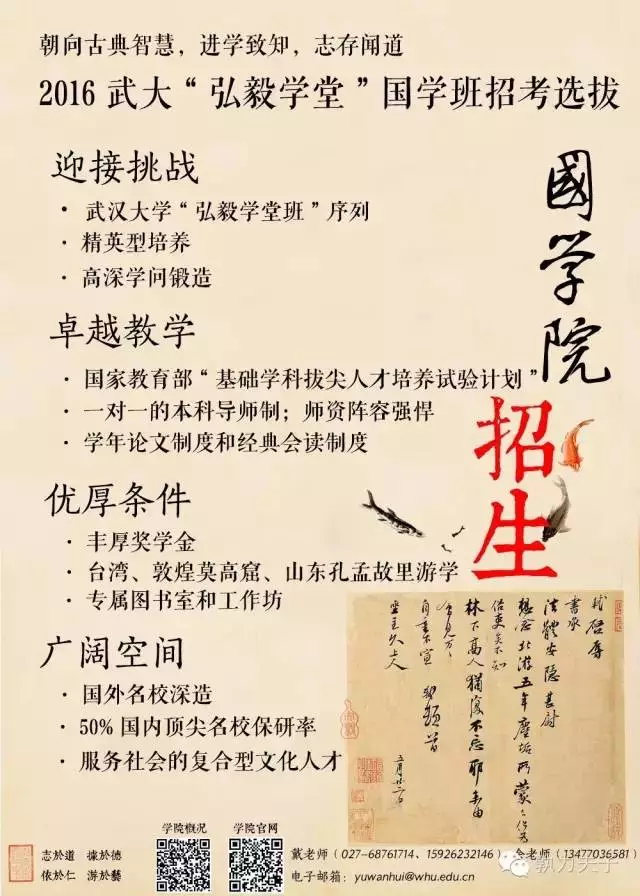 朝向古典智慧，进学致知，志存闻道
2016 武大“弘毅学堂”国学班招考选拔
迎接挑战
· 武汉大学“弘毅学堂班”序列
· 精英型培养
· 高深学问锻造
卓越教学
· 国家教育部“基础学科拔尖人才培养试验计划”
· 一对一的本科导师制；师资阵容强悍
· 学年论文制度和经典会读制度
优厚条件
· 丰厚奖学金
· 台湾、敦煌莫高窟、山东孔孟故里游学
· 专属图书室和工作坊
广阔空间
· 国外名校深造
· 50% 国内顶尖名校保研率
· 服务社会的复合型文化人才
國学院
招生
軾啓辱
書承
法體安隱甚尉
想念北游五年塵垢所蒙
林下高人猶復不忘耶未由
會見万万
自重不宣 軾頓首
坐主久上人
学院概况
学院官网
志於道 據於德
依於仁 游於藝
戴老师（027-68761714、15926232146）
老师（13477036581）
电子邮箱：yuwanhui@whu.edu.cn